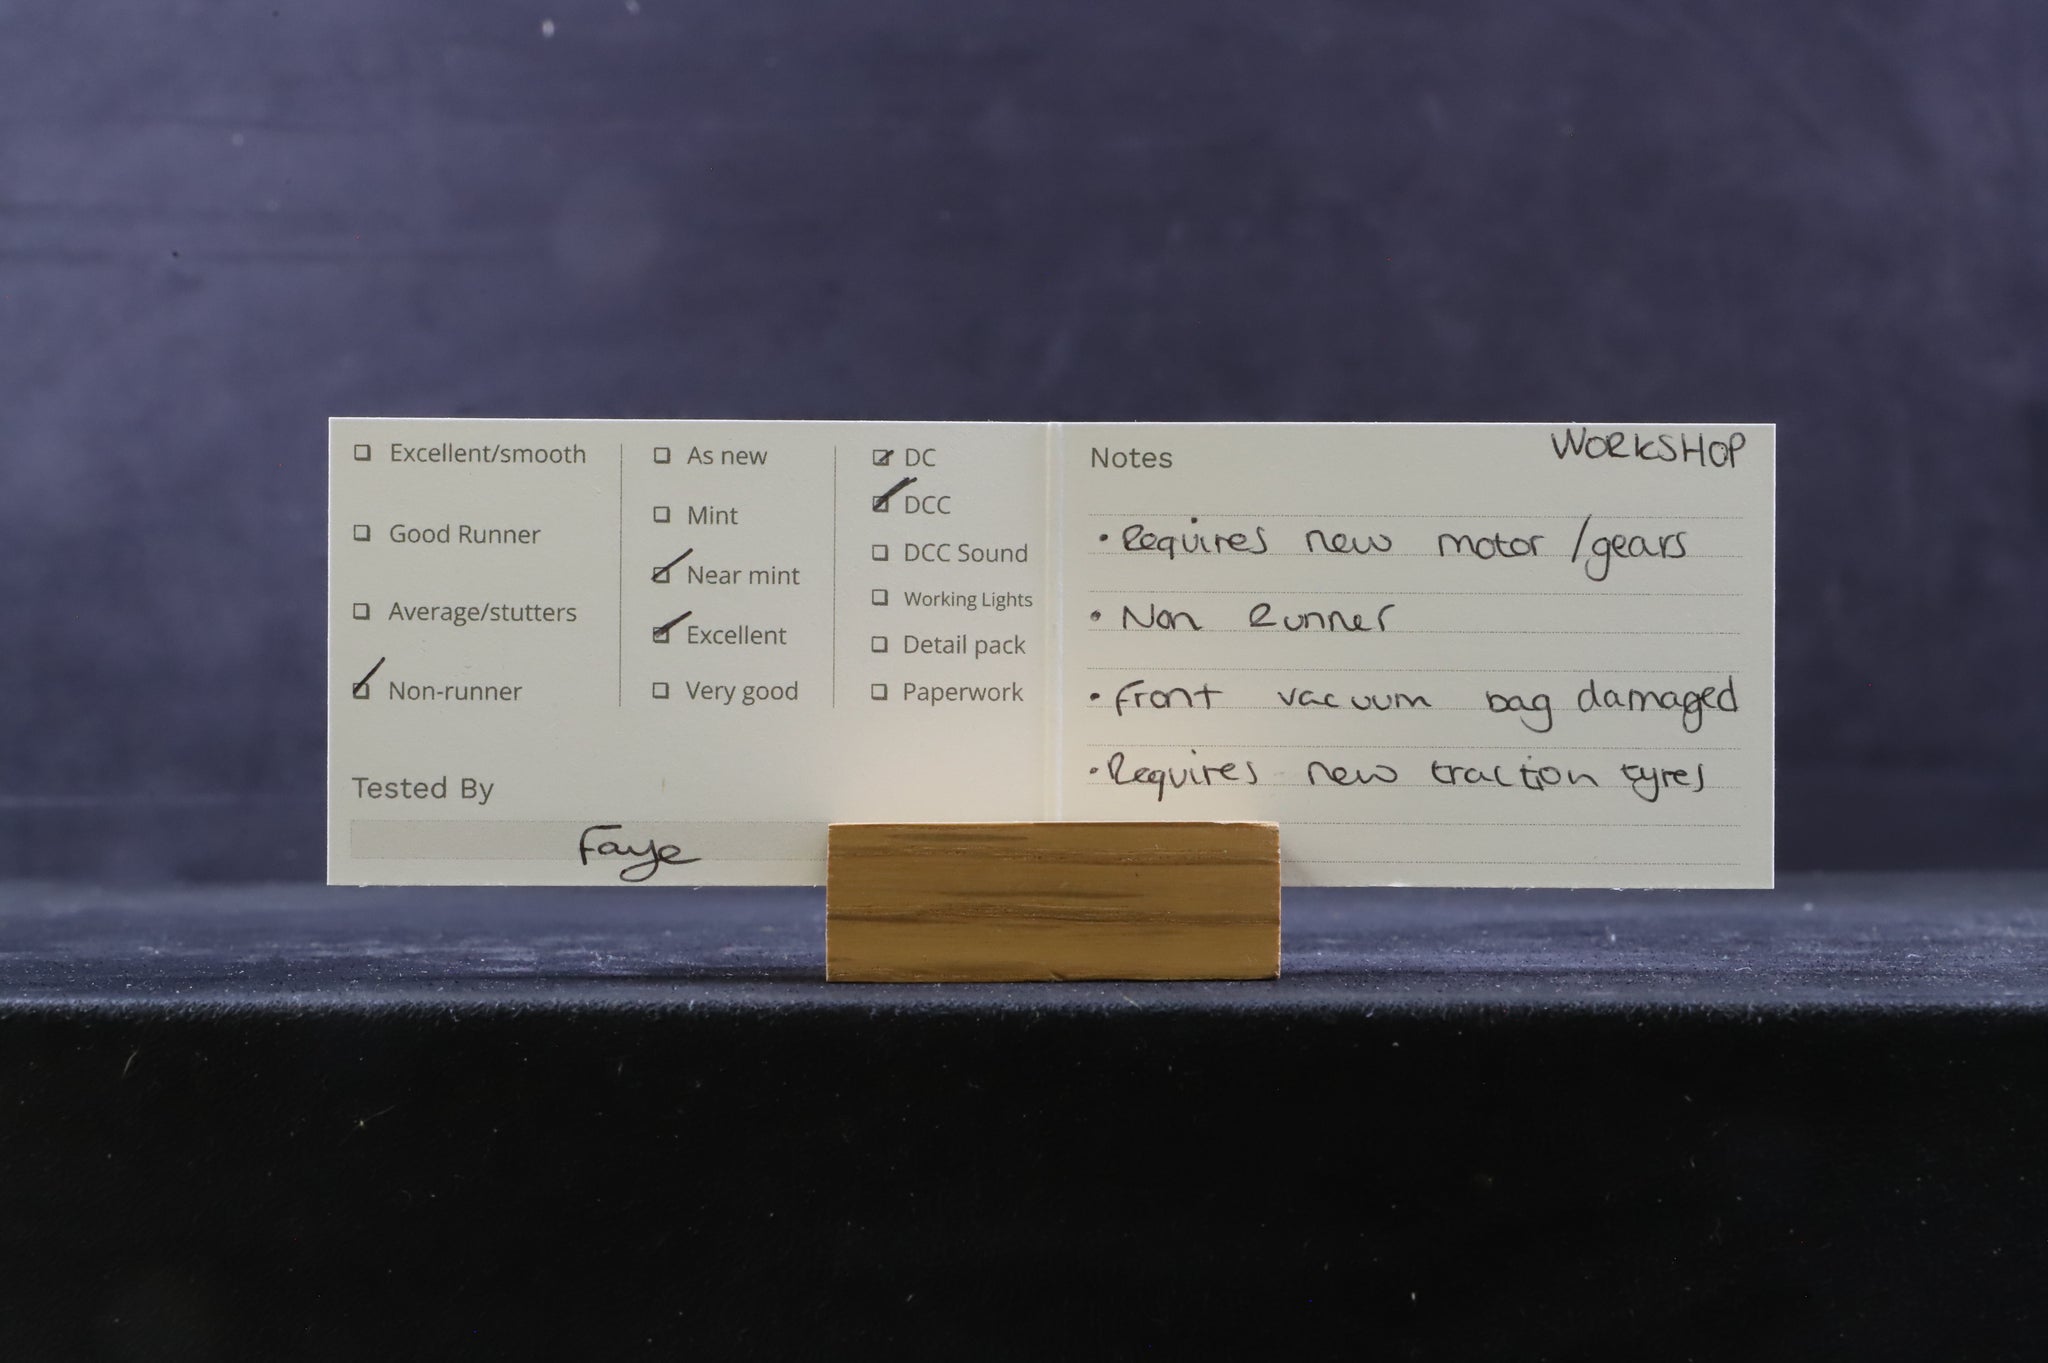 Excellent/smooth
Good Runner
Average/stutters
Non-runner
As new
Mint
Near mint
Excellent
Very good
DC
DCC
DCC Sound
Working Lights
Detail pack
Paperwork
Tested By
Faye
Notes
WORKSHOP
• Requires new motor /gears
• Non Runner
• Front vacuum bag damaged
• Requires new traction tyres